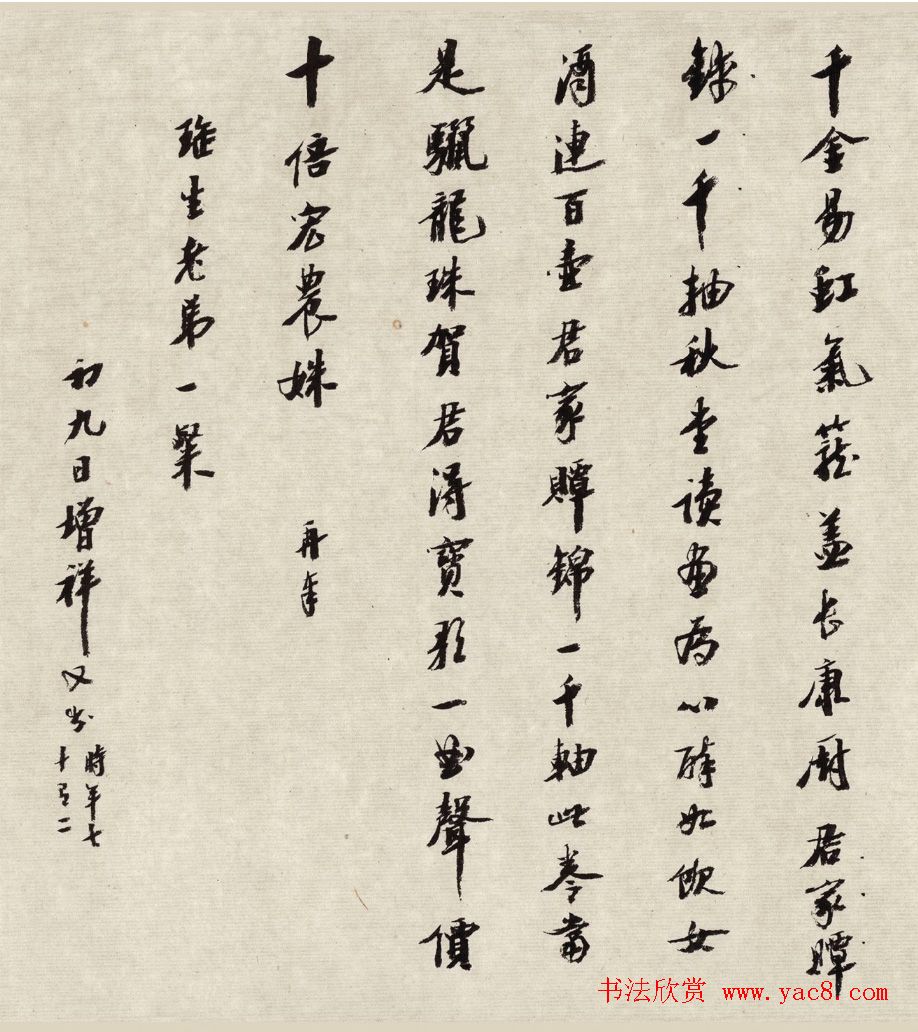 千金易虹氣籠蓋長康厨 君家贉
銖一千抽秋堂讀畫為心醉如飲女
酒連百壺君家贉錦一千軸此卷當
是驪龍珠賀君得寶歌一曲聲價
十倍宏農姝 再奉
生老弟一粲
初九日增祥又
時年七
十有二
书法欣赏 www.yac8.com